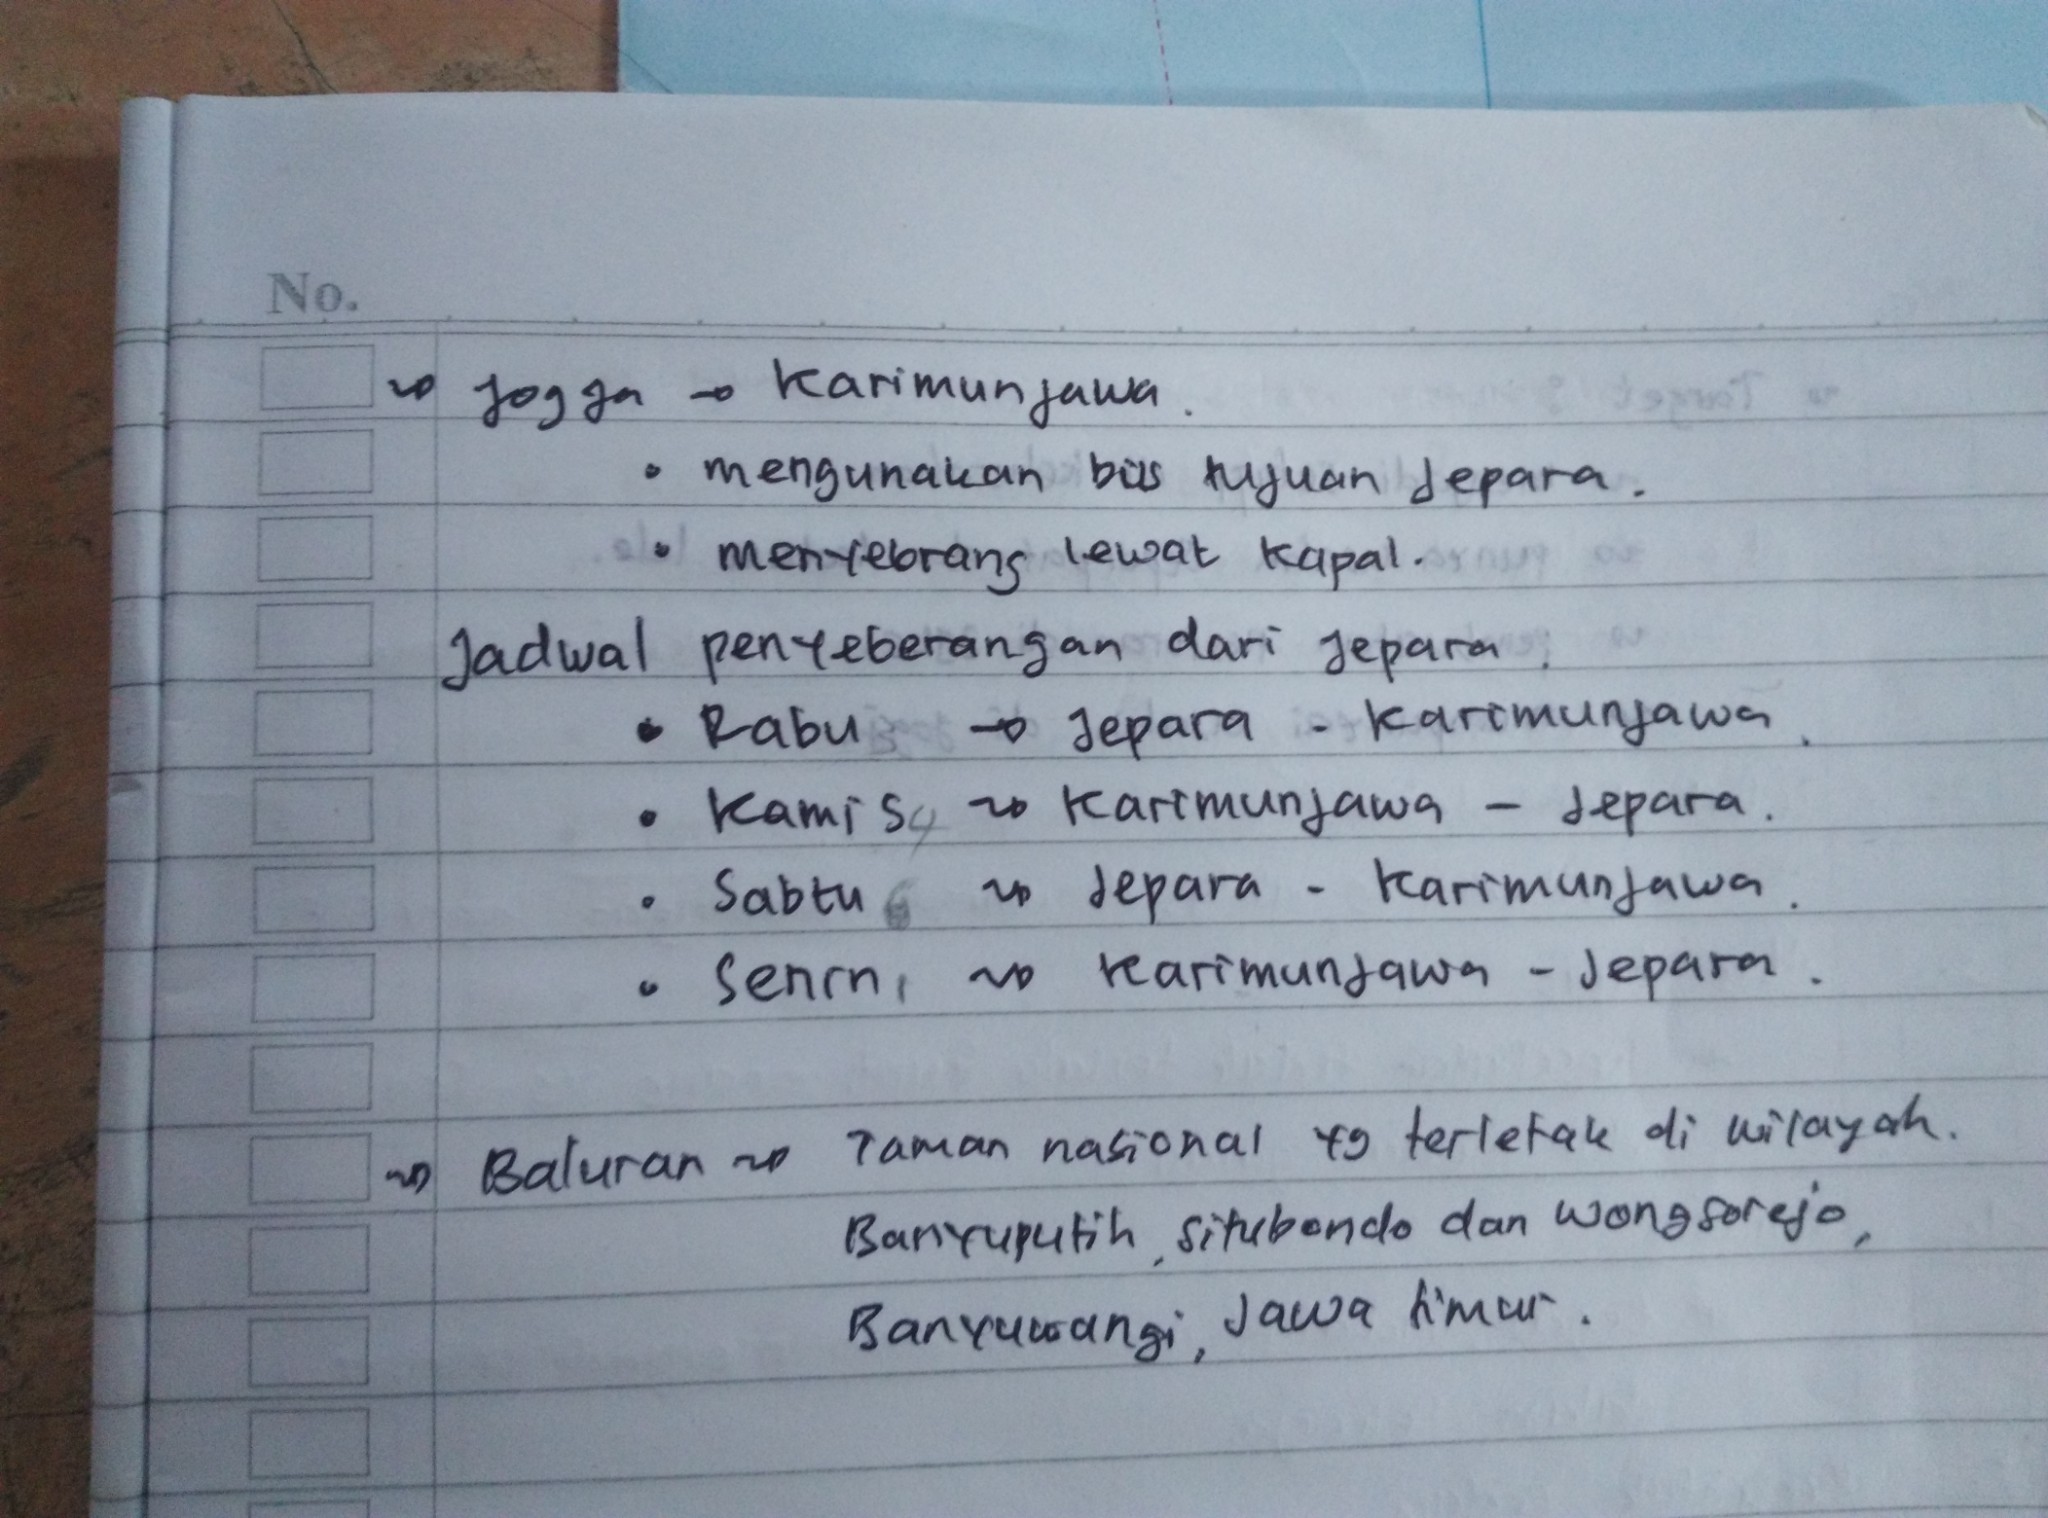 No.
→ Jogja → Karimunjawa.
• mengunakan bus tujuan Jepara.
• menyebrang lewat kapal.
Jadwal penyeberangan dari Jepara.
• Rabu → Jepara - Karimunjawa.
• Kamis 4 → Karimunjawa - Jepara.
• Sabtu 6 → Jepara - Karimunjawa.
• Senin 1 → Karimunjawa - Jepara.
→ Baluran → Taman nasional yg terletak di wilayah.
Banyuputih, Situbondo dan Wongsorejo,
Banyuwangi, Jawa timur.